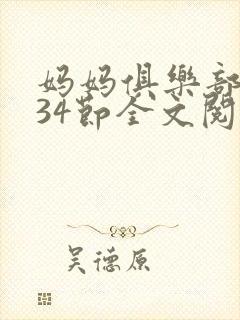 妈妈俱樂部
34節全文閱
吴德原